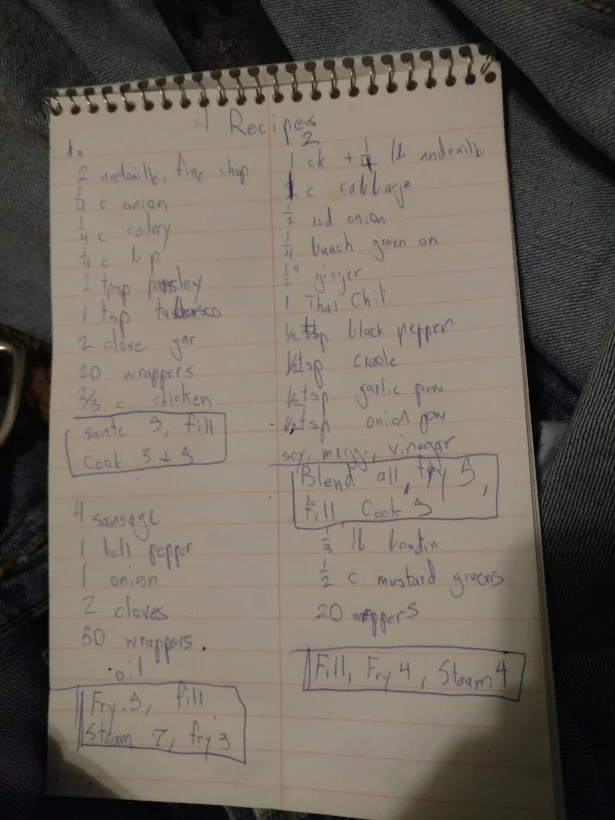 4 Recipes
1.
2 andouille, fine chop
1/4 c onion
1/4 c celery
1/4 c b p
2 tsp parsley
1 tsp tabasco
2 clove gar
20 wrappers
2/3 c chicken
saute 3, fill
Cook 3 + 3
4 sausage
1 bell pepper
1 onion
2 cloves
50 wrappers
oil
Fry 3, fill
Steam 7, fry 3
2
1 ck + 1/4 lb andouille
1 c cabbage
1/2 red onion
1/4 bunch green on
1/2" ginger
1 Thai Chil
1/2 tsp black pepper
1/2 tsp creole
1/2 tsp garlic pow
1/2 tsp onion pow
soy, maggi, vinegar
Blend all, fry 5,
fill Cook 3
1/3 lb boudin
1/2 c mustard greens
20 wrappers
Fill, Fry 4, Steam 4